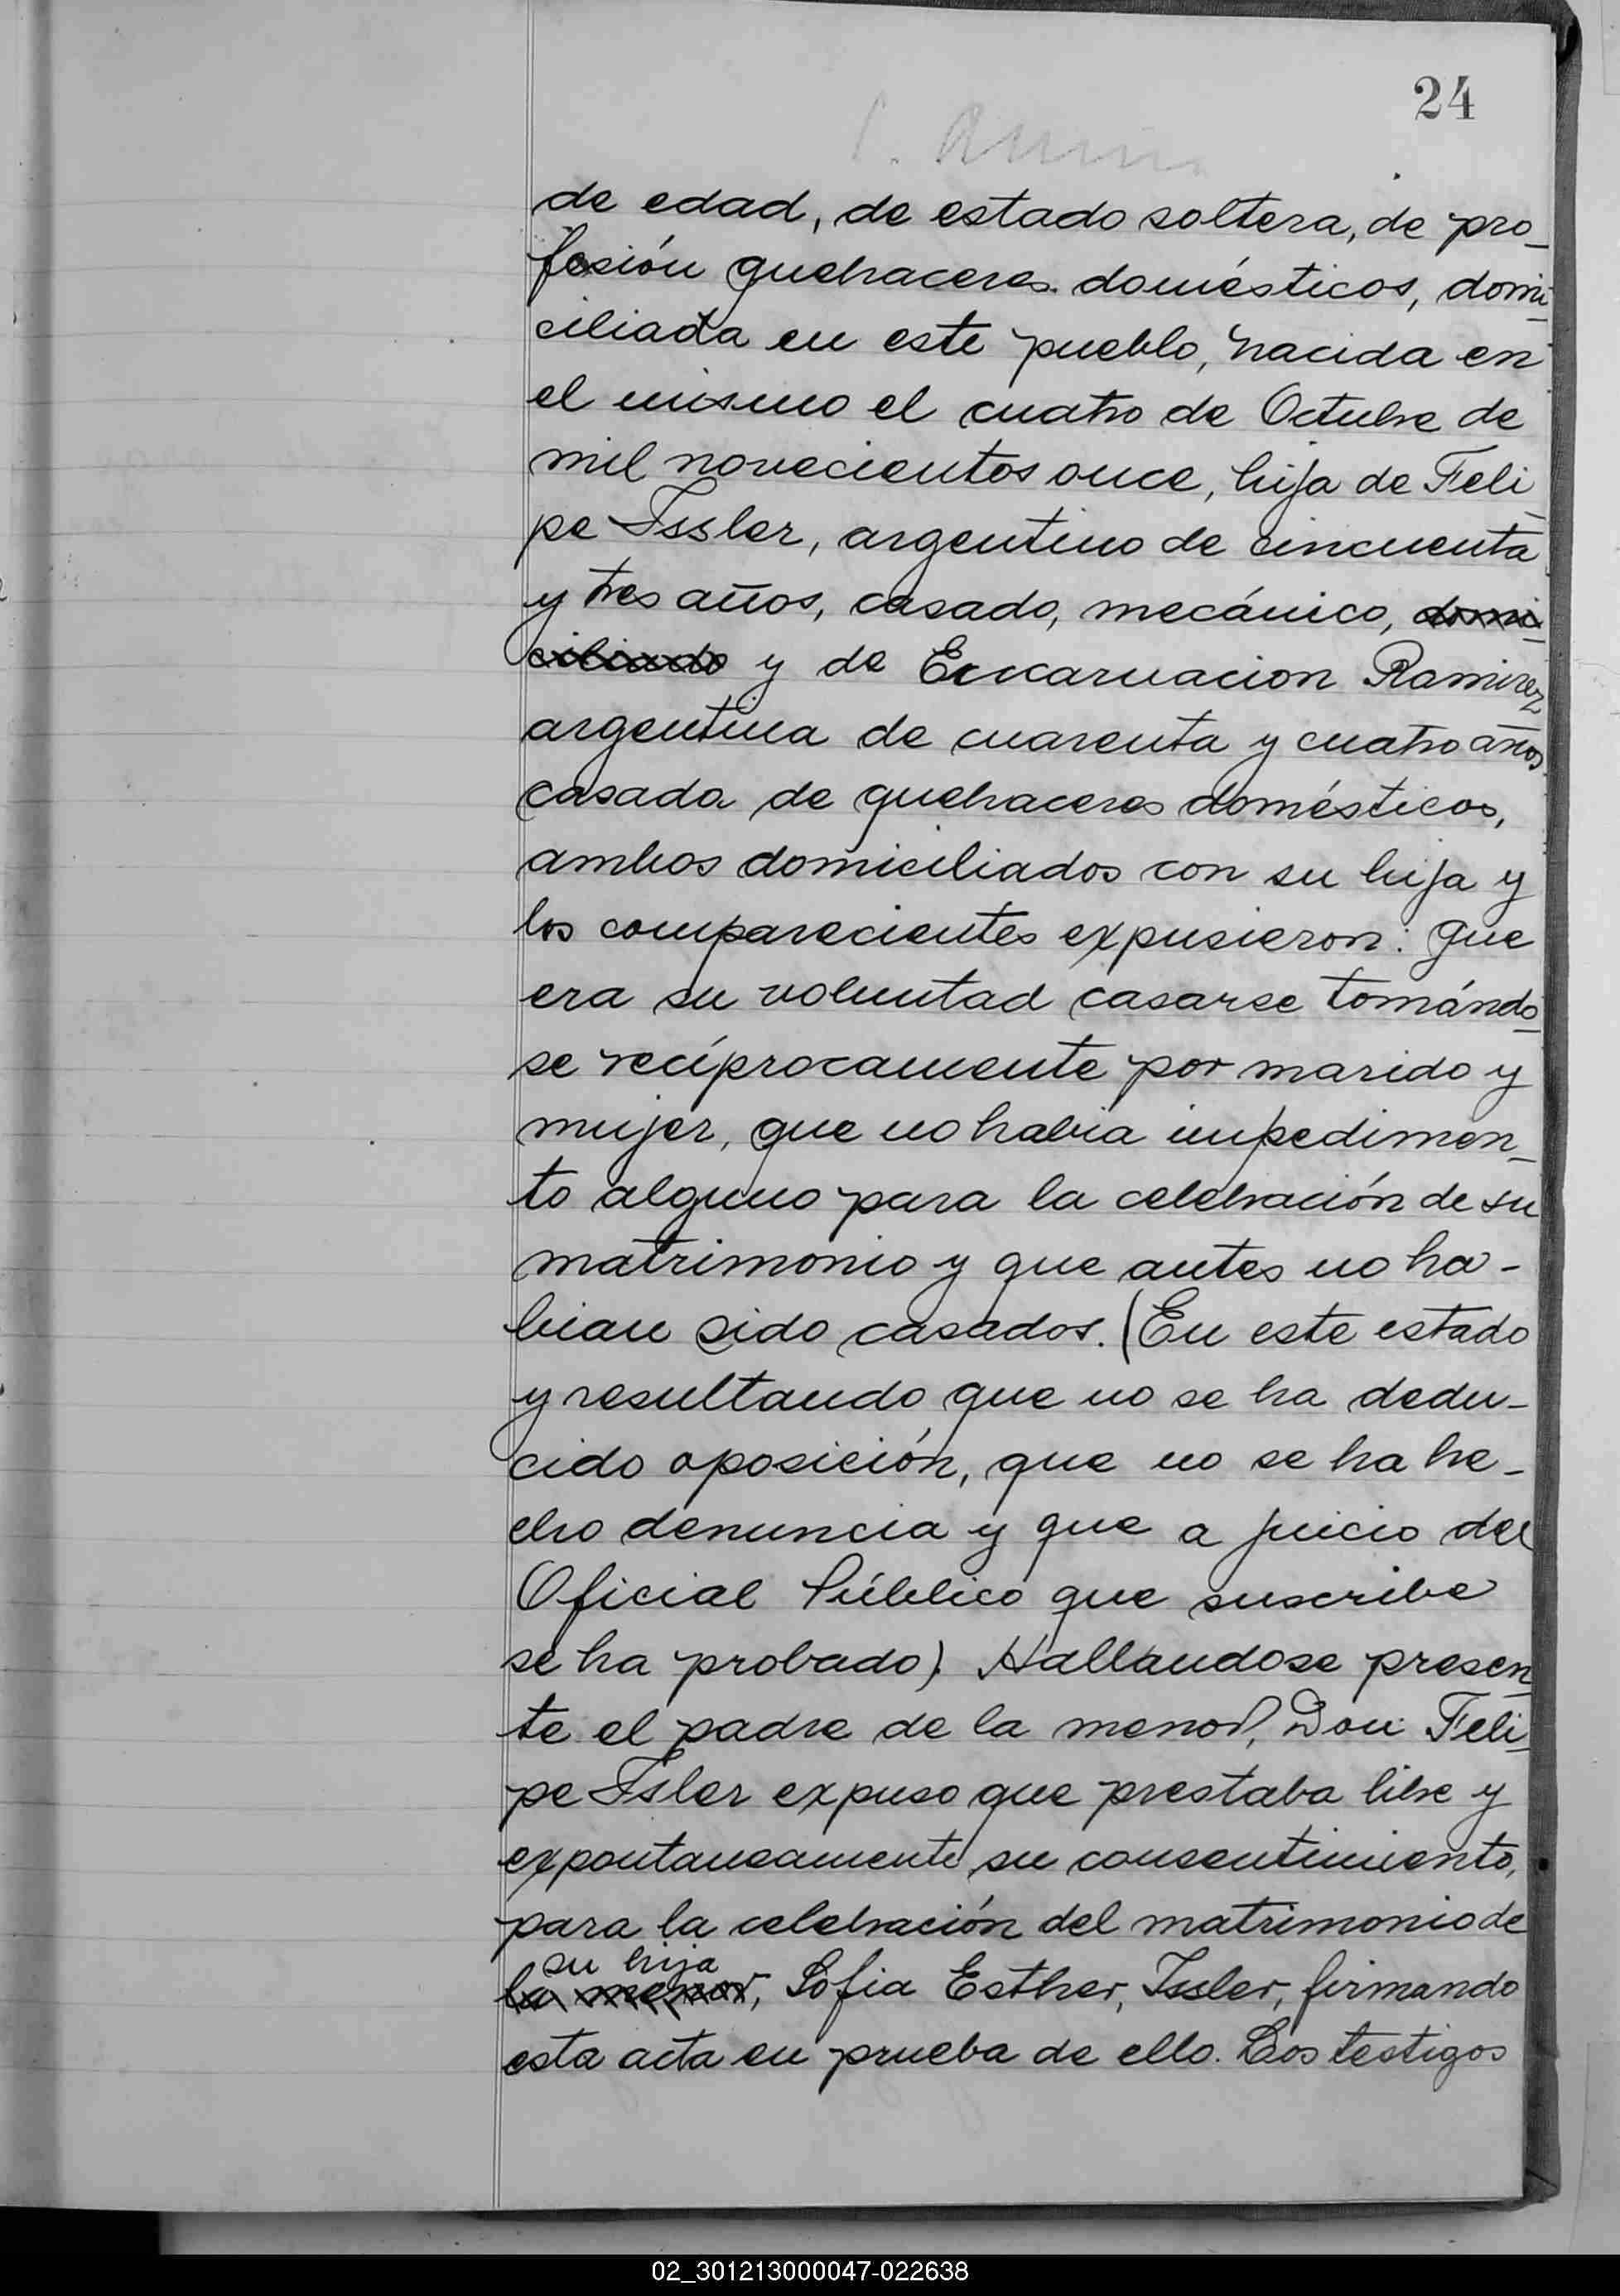 24
de edad, de estado soltera, de pro_
fesión quehaceres domésticos, domi_
ciliada en este pueblo, nacida en
el mismo el cuatro de Octubre de
mil novecientos once, hija de Feli_
pe Issler, argentino de cincuenta
y tres años, casado, mecánico, domi
ciliado y de Encarnacion Ramirez
argentina de cuarenta y cuatro años
casada de quehaceres domésticos,
ambos domiciliados con su hija y
los comparecientes expusieron: que
era su voluntad casarse tomándo_
se recíprocamente por marido y
mujer, que no habia impedimen_
to alguno para la celebración de su
matrimonio y que antes no ha-
bian sido casados. (En este estado
y resultando que no se ha dedu-
cido oposición, que no se ha he-
cho denuncia y que a juicio del
Oficial Público que suscribe
se ha probado). Hallandose presen_
te el padre de la menor, Don Feli_
pe Isler expuso que prestaba libre y
expontaneamente su consentimiento,
para la celebración del matrimonio de
su hija
la menor, Sofia Esther, Issler, firmando
esta acta en prueba de ello. Los testigos
02_301213000047-022638